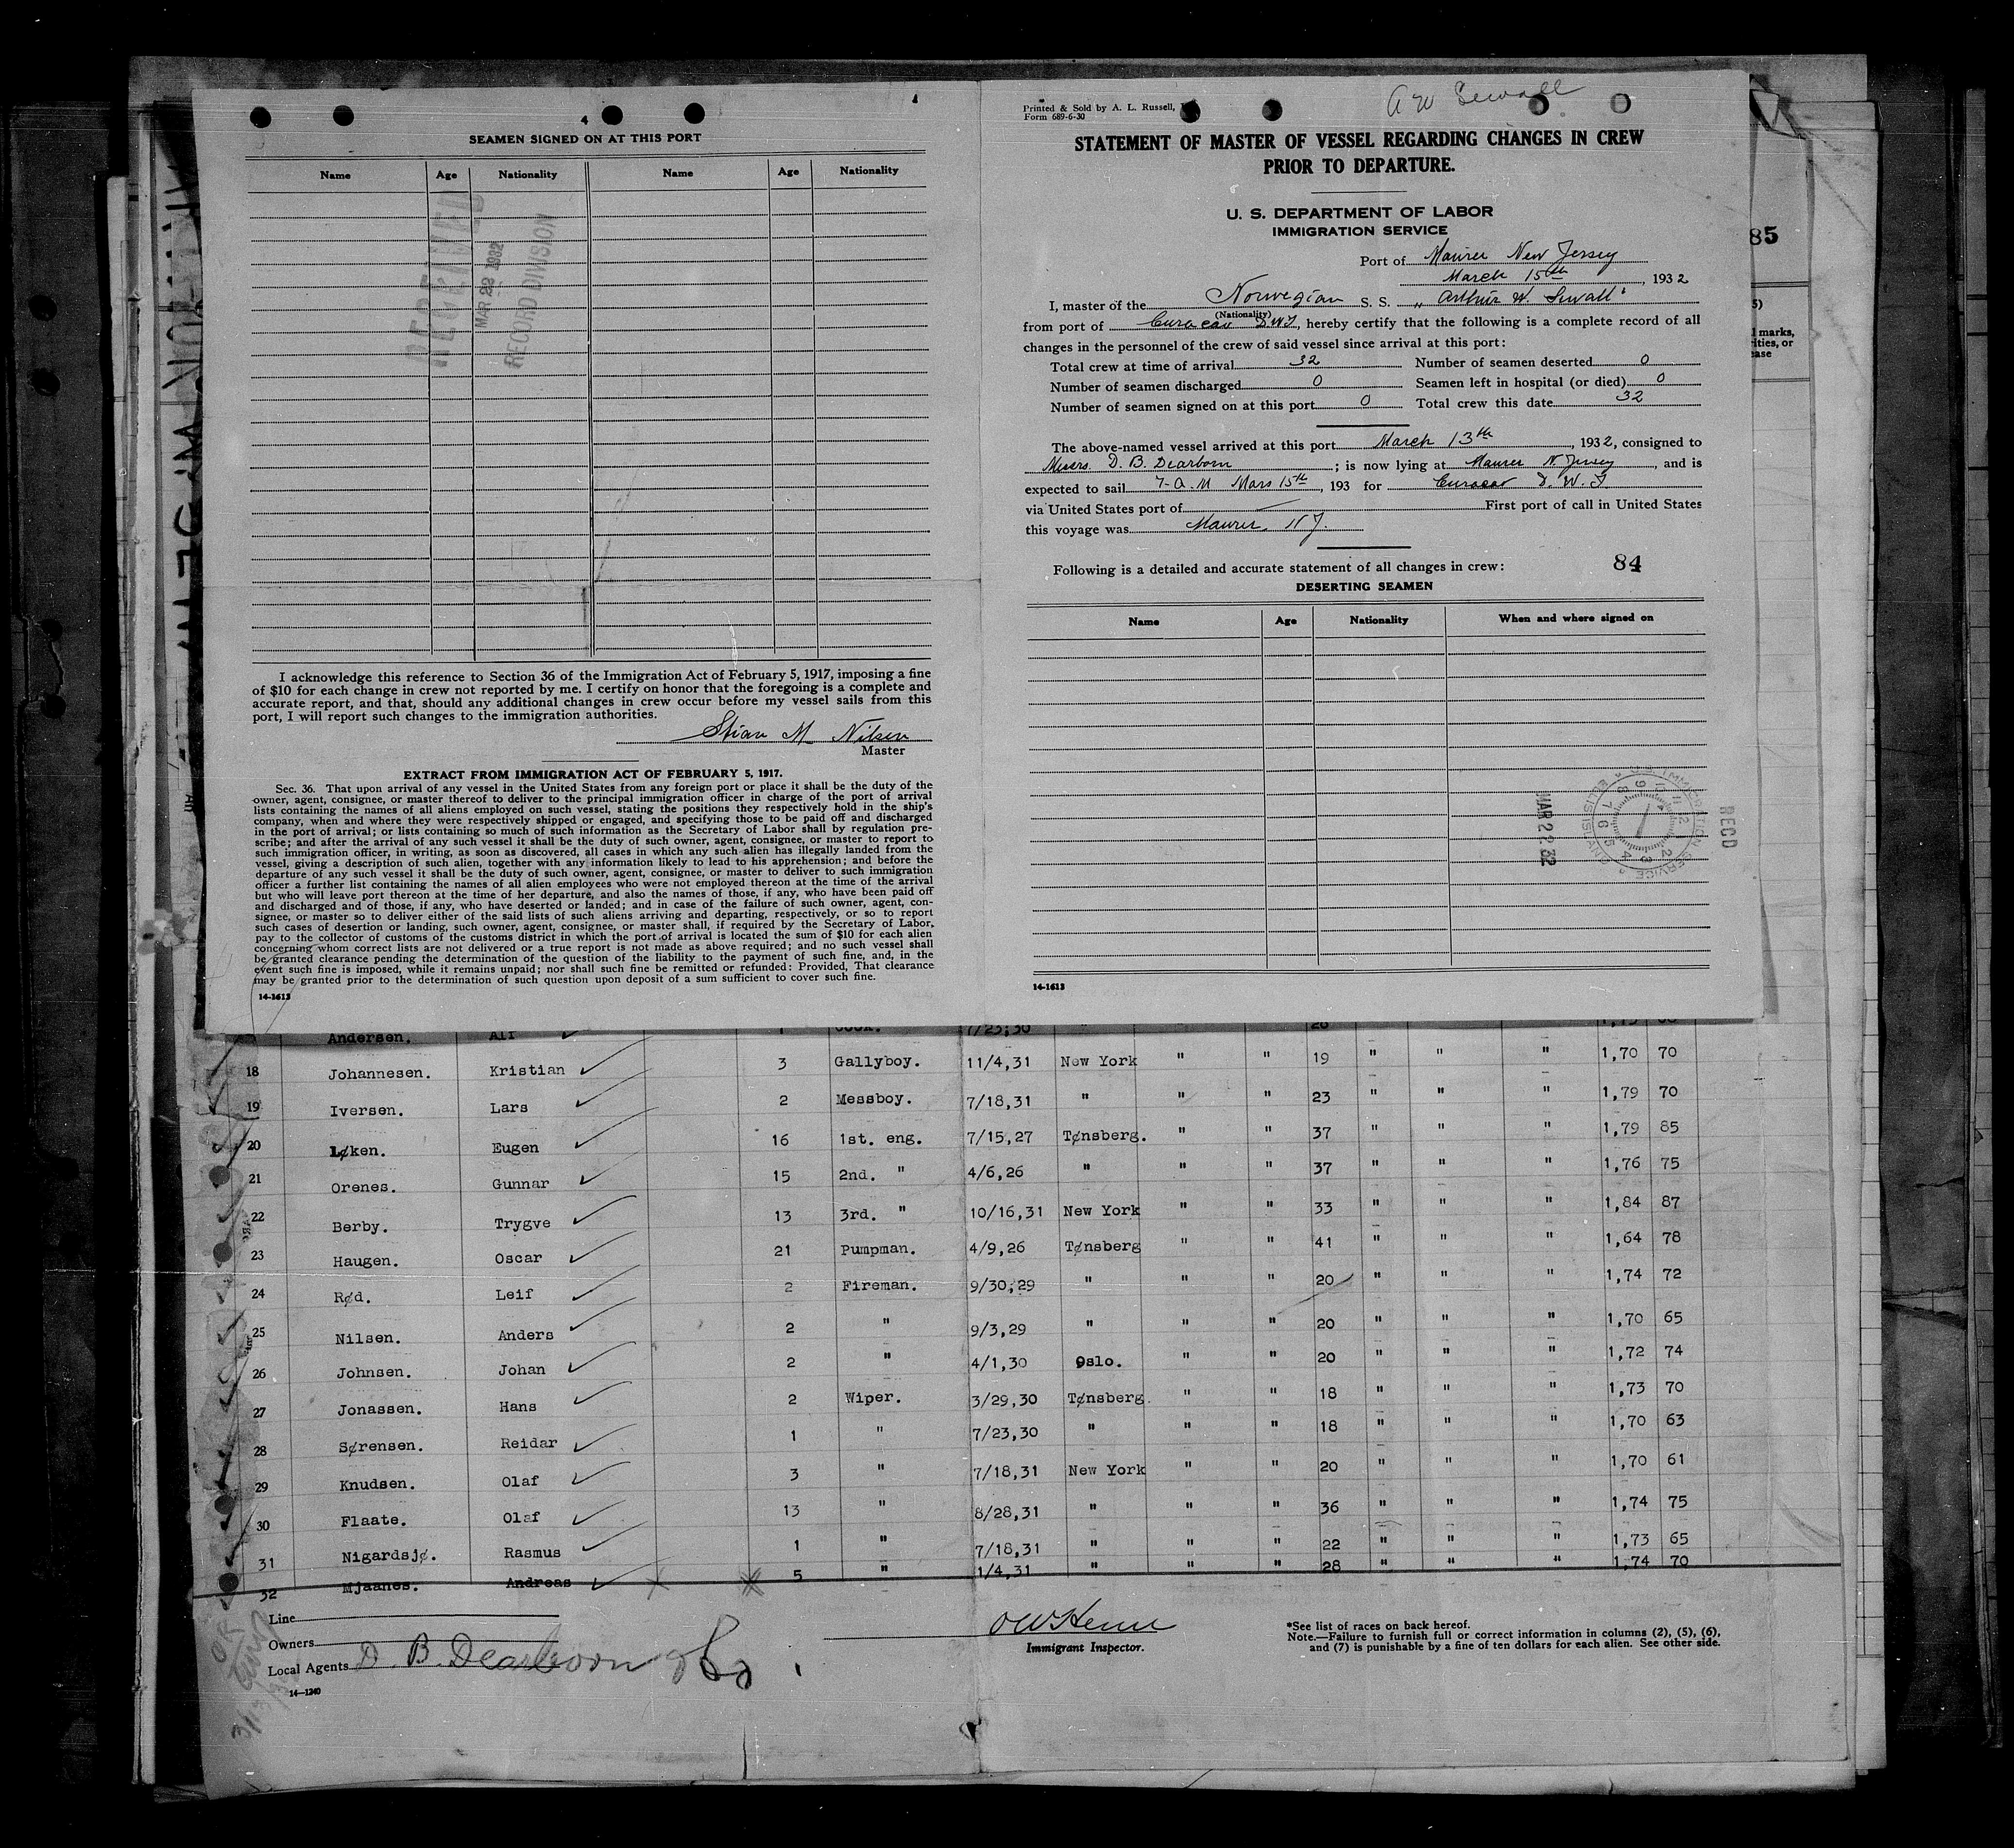 4
SEAMEN SIGNED ON AT THIS PORT
Name Age Nationality Name Age Nationality
RECEIVED
MAR 22 1932
RECORD DIVISION
I acknowledge this reference to Section 36 of the Immigration Act of February 5, 1917, imposing a fine
of $10 for each change in crew not reported by me. I certify on honor that the foregoing is a complete and
accurate report, and that, should any additional changes in crew occur before my vessel sails from this
port, I will report such changes to the immigration authorities.
Stian M Nilsen
Master
EXTRACT FROM IMMIGRATION ACT OF FEBRUARY 5, 1917.
Sec. 36. That upon arrival of any vessel in the United States from any foreign port or place it shall be the duty of the
owner, agent, consignee, or master thereof to deliver to the principal immigration officer in charge of the port of arrival
lists containing the names of all aliens employed on such vessel, stating the positions they respectively hold in the ship's
company, when and where they were respectively shipped or engaged, and specifying those to be paid off and discharged
in the port of arrival; or lists containing so much of such information as the Secretary of Labor shall by regulation pre-
scribe; and after the arrival of any such vessel it shall be the duty of such owner, agent, consignee, or master to report to
such immigration officer, in writing, as soon as discovered, all cases in which any such alien has illegally landed from the
vessel, giving a description of such alien, together with any information likely to lead to his apprehension; and before the
departure of any such vessel it shall be the duty of such owner, agent, consignee, or master to deliver to such immigration
officer a further list containing the names of all alien employees who were not employed thereon at the time of the arrival
but who will leave port thereon at the time of her departure, and also the names of those, if any, who have been paid off
and discharged and of those, if any, who have deserted or landed; and in case of the failure of such owner, agent, con-
signee, or master so to deliver either of the said lists of such aliens arriving and departing, respectively, or so to report
such cases of desertion or landing, such owner, agent, consignee, or master shall, if required by the Secretary of Labor,
pay to the collector of customs of the customs district in which the port of arrival is located the sum of $10 for each alien
concerning whom correct lists are not delivered or a true report is not made as above required; and no such vessel shall
be granted clearance pending the determination of the question of the liability to the payment of such fine, and, in the
event such fine is imposed, while it remains unpaid; nor shall such fine be remitted or refunded: Provided, That clearance
may be granted prior to the determination of such question upon deposit of a sum sufficient to cover such fine.
14-1613
Printed & Sold by A. L. Russell,
Form 689-6-30
A W Sewall
STATEMENT OF MASTER OF VESSEL REGARDING CHANGES IN CREW
PRIOR TO DEPARTURE.
U. S. DEPARTMENT OF LABOR
IMMIGRATION SERVICE
Port of Maurer New Jersey
March 15th, 1932
I, master of the Norwegian S. S. „ Arthur W. Sewall"
(Nationality)
from port of Curacao D.W.I, hereby certify that the following is a complete record of all
changes in the personnel of the crew of said vessel since arrival at this port:
Total crew at time of arrival 32 Number of seamen deserted 0
Number of seamen discharged 0 Seamen left in hospital (or died) 0
Number of seamen signed on at this port 0 Total crew this date 32
The above-named vessel arrived at this port March 13th, 1932, consigned to
Messrs. D. B. Dearborn; is now lying at Maurer N Jersey, and is
expected to sail 7-A.M Mars 15th, 193 for Curacao D. W. I
via United States port of — First port of call in United States
this voyage was Maurer. N J.
Following is a detailed and accurate statement of all changes in crew: 84
DESERTING SEAMEN
Name Age Nationality When and where signed on
MAR 22.32
RECD
14-1613
85
l marks,
rities, or
ease
Andersen. Alf 1 Cook. 7/23,30 " " 20 1,75
18 Johannesen. Kristian 3 Gallyboy. 11/4,31 New York " " 19 " " " 1,70 70
19 Iversen. Lars 2 Messboy. 7/18,31 " " " 23 " " " 1,79 70
20 Løken. Eugen 16 1st. eng. 7/15,27 Tønsberg. " " 37 " " " 1,79 85
21 Orenes. Gunnar 15 2nd. " 4/6,26 " " " 37 " " " 1,76 75
22 Berby. Trygve 13 3rd. " 10/16,31 New York " " 33 " " " 1,84 87
23 Haugen. Oscar 21 Pumpman. 4/9,26 Tønsberg " " 41 " " " 1,64 78
24 Rød. Leif 2 Fireman. 9/30;29 " " " 20 " " " 1,74 72
25 Nilsen. Anders 2 " 9/3,29 " " " 20 " " " 1,70 65
26 Johnsen. Johan 2 " 4/1,30 Oslo. " " 20 " " " 1,72 74
27 Jonassen. Hans 2 Wiper. 3/29,30 Tønsberg. " " 18 " " " 1,73 70
28 Sørensen. Reidar 1 " 7/23,30 " " " 18 " " " 1,70 63
29 Knudsen. Olaf 3 " 7/18,31 New York " " 20 " " " 1,70 61
30 Flaate. Olaf 13 " 8/28,31 " " " 36 " " " 1,74 75
31 Nigardsjø. Rasmus 1 " 7/18,31 " " " 22 " " " 1,73 65
32 Mjaanes. Andreas 5 " 1/4,31 " " " 28 " " " 1,74 70
Line
Owners
Local Agents D. B. Dearborn & Co.
14—1240
Immigrant Inspector.
*See list of races on back hereof.
Note.—Failure to furnish full or correct information in columns (2), (5), (6),
and (7) is punishable by a fine of ten dollars for each alien. See other side.